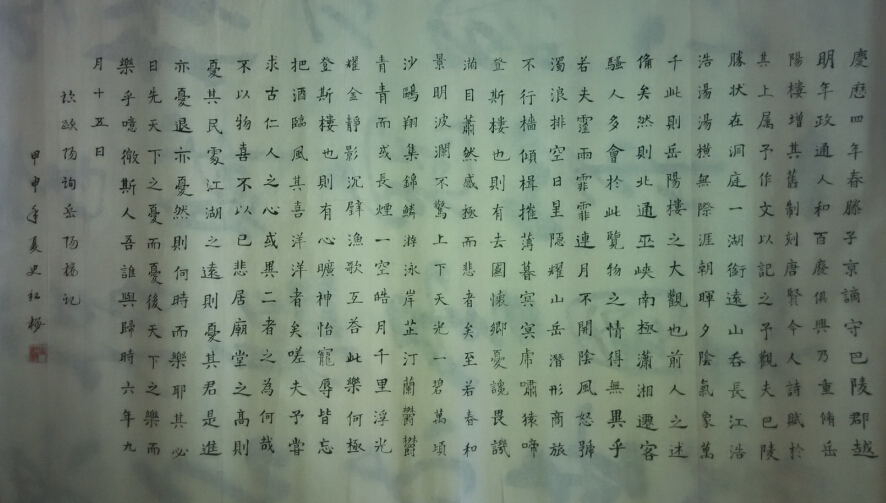 慶曆四年春滕子京謫守巴陵郡越
明年政通人和百廢俱興乃重脩岳
陽樓增其舊制刻唐賢今人詩賦於
其上属予作文以記之予觀夫巴陵
勝状在洞庭一湖銜遠山吞長江浩
浩湯湯橫無際涯朝暉夕陰氣象萬
千此則岳陽樓之大觀也前人之述
備矣然則北通巫峽南極瀟湘遷客
騷人多會於此覽物之情得無異乎
若夫霪雨霏霏連月不開陰風怒號
濁浪排空日星隱耀山岳潛形商旅
不行檣傾楫摧薄暮冥冥虎嘯猿啼
登斯樓也則有去國懷鄉憂讒畏譏
滿目蕭然感極而悲者矣至若春和
景明波瀾不驚上下天光一碧萬頃
沙鷗翔集錦鱗游泳岸芷汀蘭鬱鬱
青青而或長煙一空皓月千里浮光
耀金靜影沉璧漁歌互答此樂何極
登斯樓也則有心曠神怡寵辱皆忘
把酒臨風其喜洋洋者矣嗟夫予嘗
求古仁人之心或異二者之為何哉
不以物喜不以己悲居廟堂之高則
憂其民處江湖之遠則憂其君是進
亦憂退亦憂然則何時而樂耶其必
曰先天下之憂而憂後天下之樂而
樂乎噫微斯人吾誰與歸時六年九
月十五日
欧阳询岳阳楼记
甲申年夏史